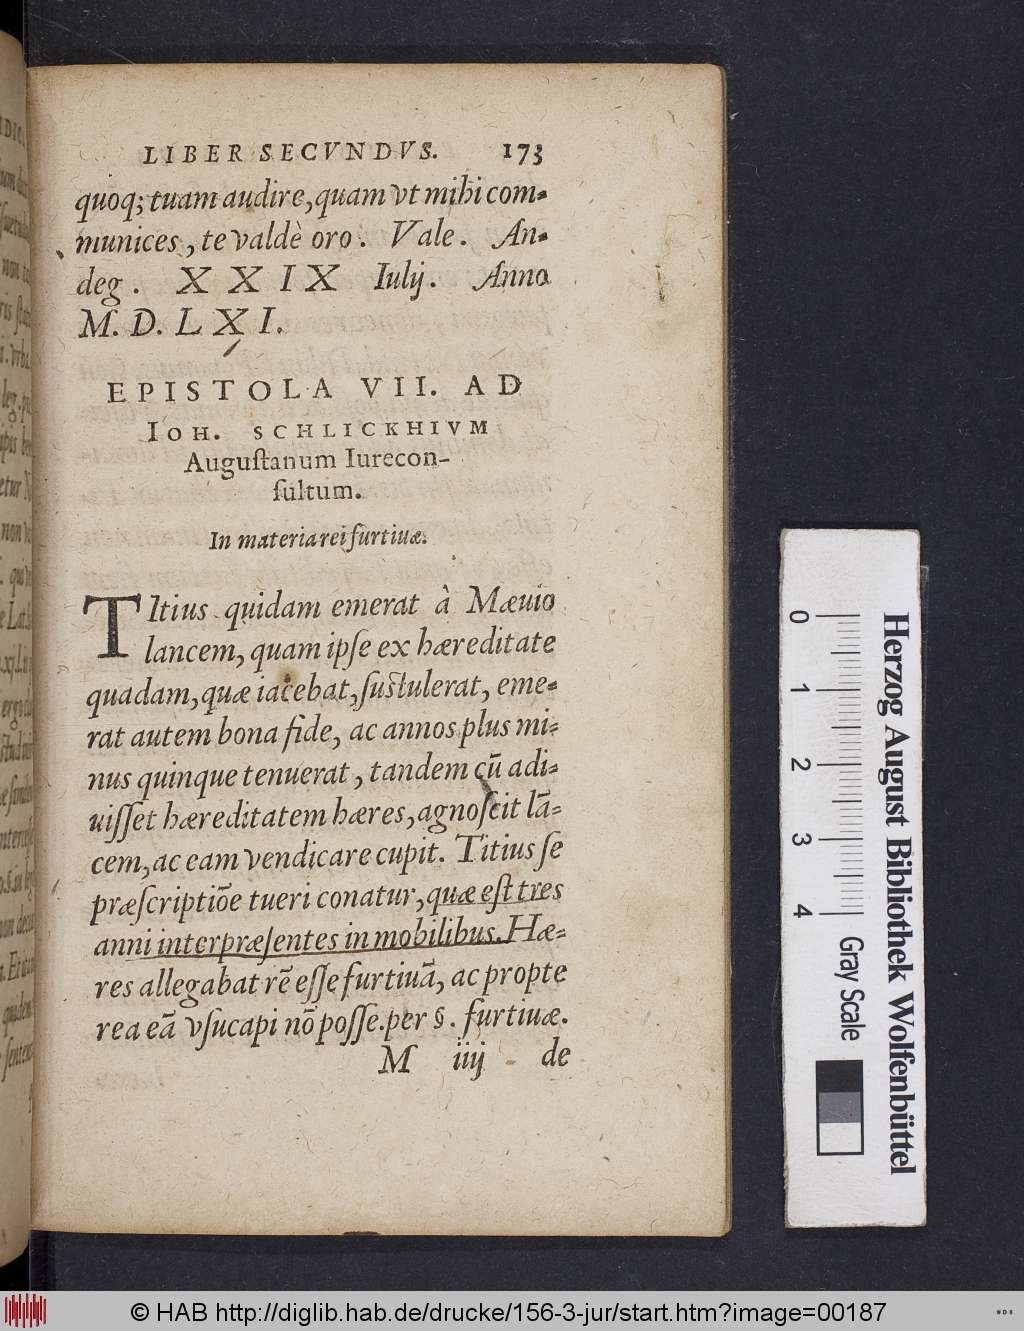 LIBER SECVNDVS. 173
quoq; tuam audire, quam vt mihi com-
munices, te valdè oro. Vale. An-
deg. XXIX Iulij. Anno
M. D. LXI.
EPISTOLA VII. AD
IOH. SCHLICKHIVM
Auguſtanum Iurecon-
ſultum.
In materia rei furtiuæ.
TItius quidam emerat à Mæuio
lancem, quam ipſe ex hæreditate
quadam, quæ iacebat, ſuſtulerat, eme-
rat autem bona fide, ac annos plus mi-
nus quinque tenuerat, tandem cū adi-
uiſſet hæreditatem hæres, agnoſcit lā-
cem, ac eam vendicare cupit. Titius ſe
præſcriptiōe tueri conatur, quæ eſt tres
anni inter præſentes in mobilibus. Hæ-
res allegabat rē eſſe furtiuā, ac propte
rea eā vſucapi nō poſſe. per §. furtiuæ.
M iiij de
Herzog August Bibliothek Wolfenbüttel
0 1 2 3 4 Gray Scale
© HAB http://diglib.hab.de/drucke/156-3-jur/start.htm?image=00187